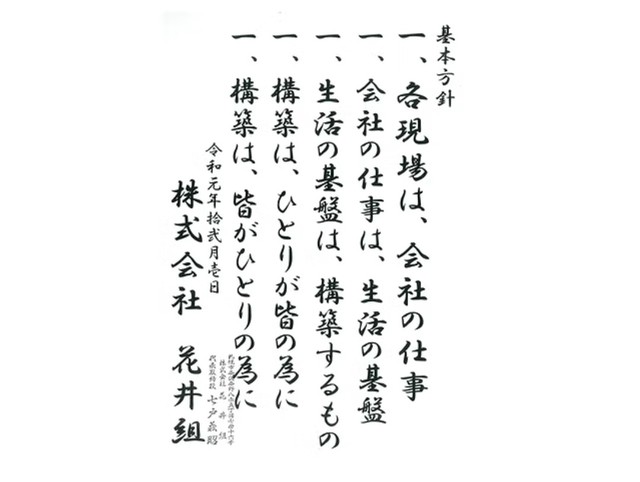 基本方針
一、各現場は、会社の仕事
一、会社の仕事は、生活の基盤
一、生活の基盤は、構築するもの
一、構築は、ひとりが皆の為に
一、構築は、皆がひとりの為に
令和元年拾弐月壱日
株式会社 花井組
株式会社 花井組
代表取締役